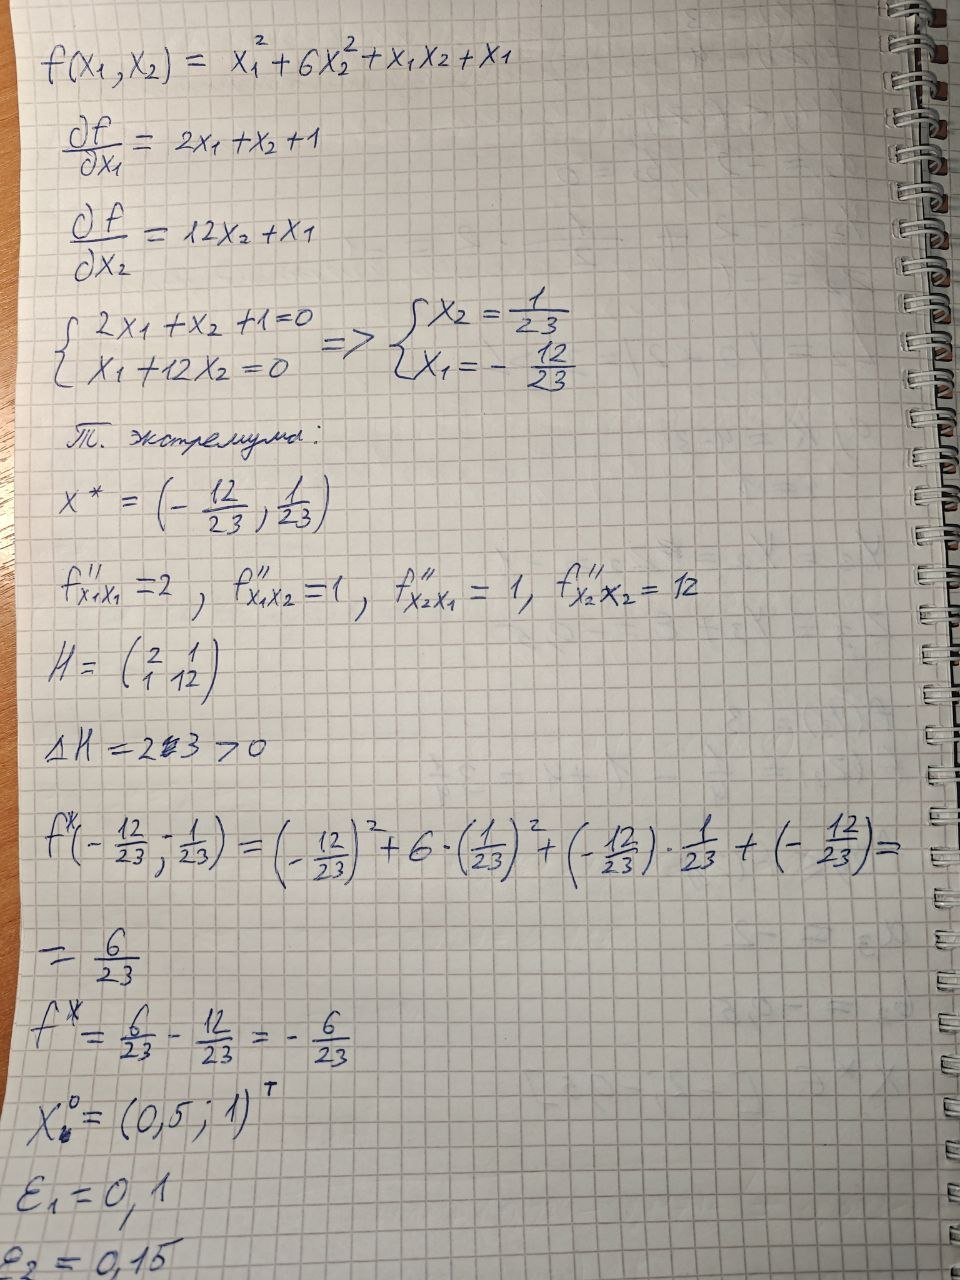 f(x₁, x₂) = x₁² + 6x₂² + x₁x₂ + x₁
∂f/∂x₁ = 2x₁ + x₂ + 1
∂f/∂x₂ = 12x₂ + x₁
{ 2x₁ + x₂ + 1 = 0 ; x₁ + 12x₂ = 0 => { x₂ = 1/23 ; x₁ = - 12/23
Т. экстремума:
x* = (- 12/23, 1/23)
f''x₁x₁ = 2, f''x₁x₂ = 1, f''x₂x₁ = 1, f''x₂x₂ = 12
H = (2 1 ; 1 12)
ΔH = 23 > 0
f*(- 12/23; - 1/23) = (- 12/23)² + 6 · (1/23)² + (- 12/23) · 1/23 + (- 12/23) =
= 6/23
f* = 6/23 - 12/23 = - 6/23
x⁰ = (0,5; 1)ᵀ
ε₁ = 0,1
ε₂ = 0,15